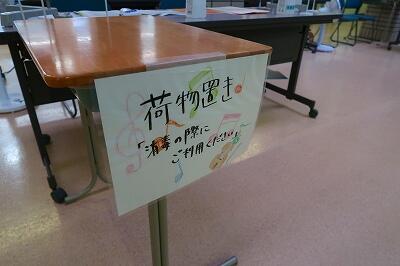 荷物置き
「消毒の際に
ご利用ください」